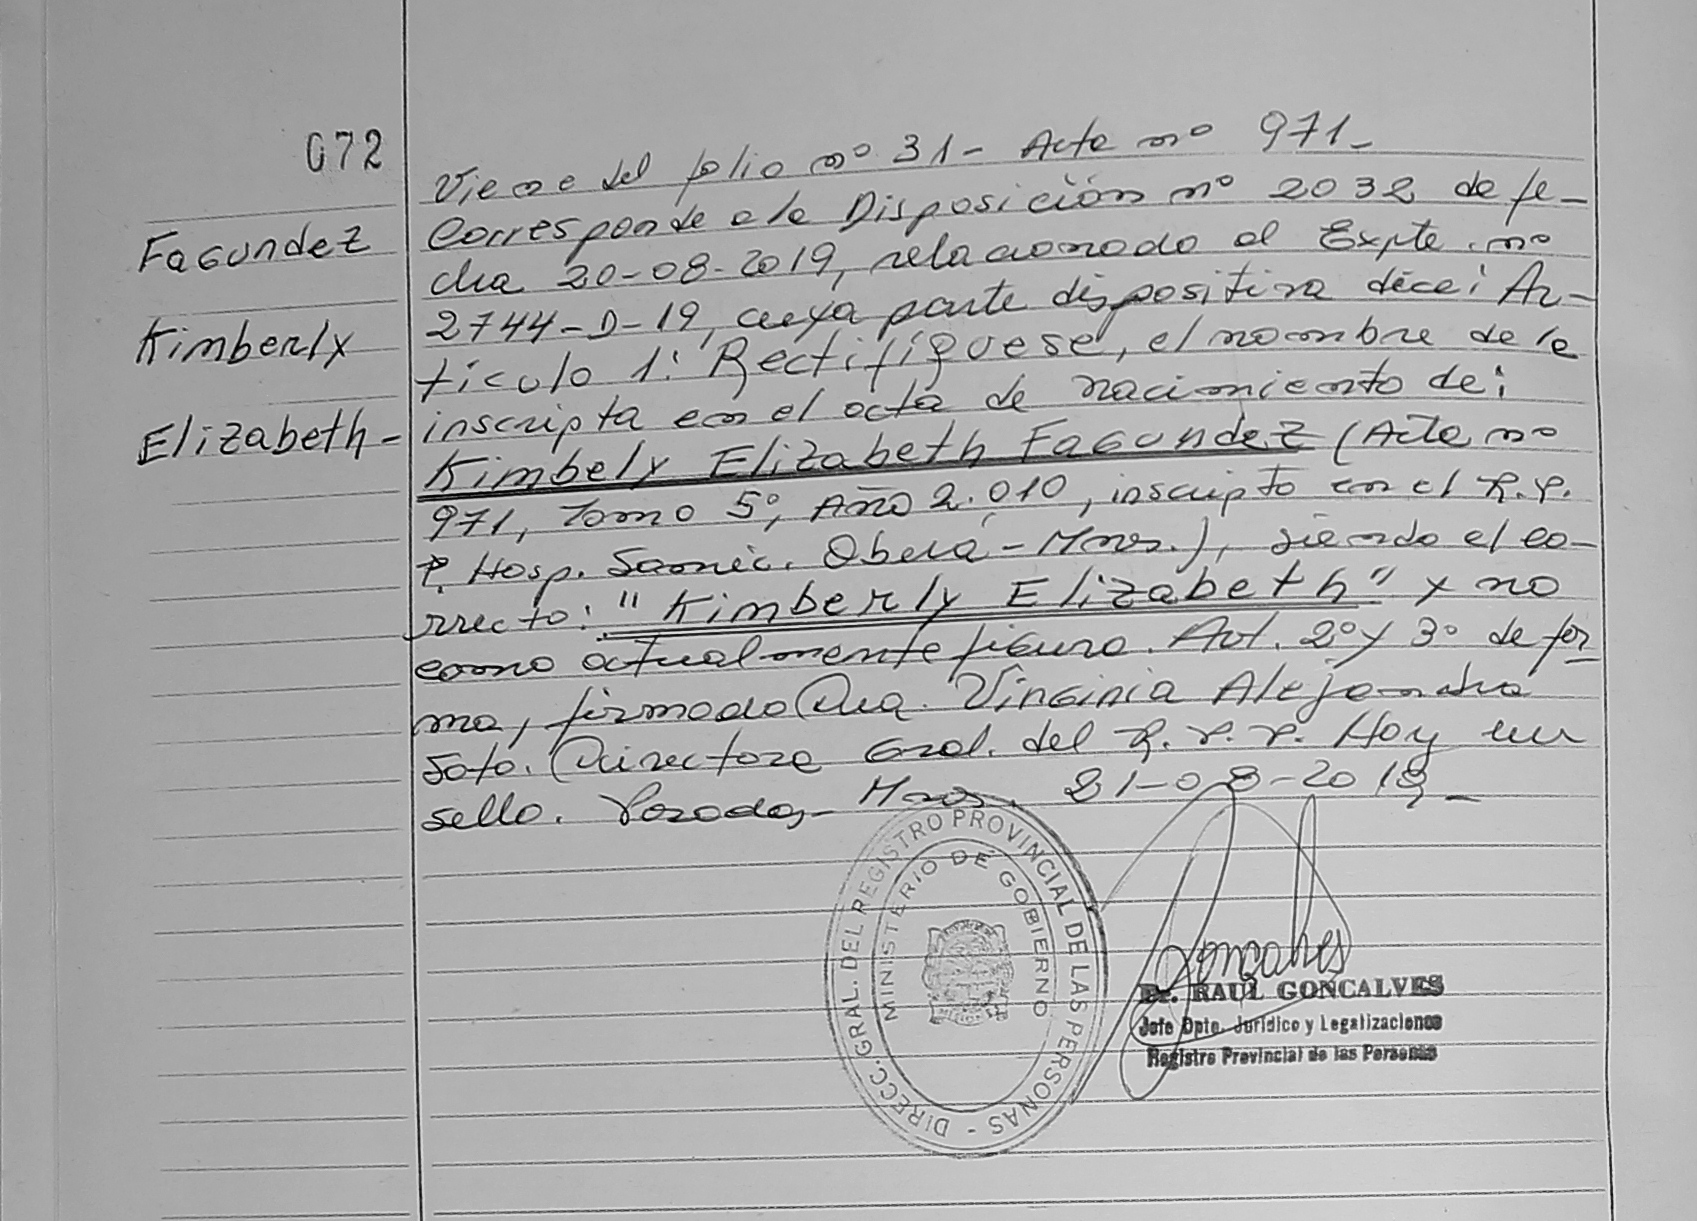 072
Facundez
Kimberly
Elizabeth-
Viene del folio nº 31- Acta nº 971-
Corresponde a la Disposición nº 2032 de fe-
cha 20-08-2019, relacionado al Expte. nº
2744-D-19, cuya parte dispositiva dice: Ar-
tículo 1: Rectifíquese, el nombre de la
inscripta en el acta de nacimiento de:
Kimbely Elizabeth Facundez (Acta nº
971, Tomo 5º, Año 2.010, inscripto en el R.P.
P. Hosp. Samic. Oberá-Mnes.), siendo el co-
rrecto: "Kimberly Elizabeth" y no
como actualmente figura. Art. 2º y 3º de for
ma, firmado Dra. Virginia Alejandra
Soto. Directora Gral. del R.P.P. Hay un
sello. Posadas, Mnes. 21-08-2019-
DIRECC. GRAL. DEL REGISTRO PROVINCIAL DE LAS PERSONAS -
MINISTERIO DE GOBIERNO
Goncalves
Dr. RAUL GONCALVES
Jefe Dpto. Jurídico y Legalizaciones
Registro Provincial de las Personas